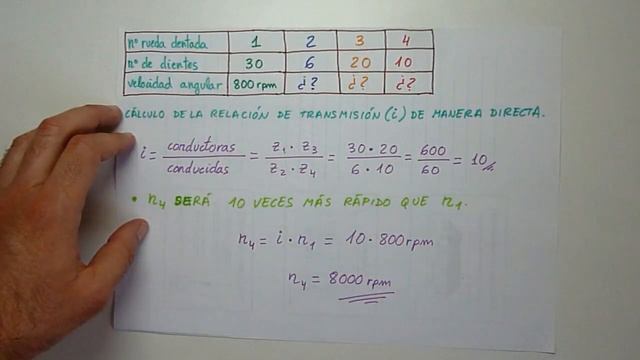 nº rueda dentada 1 2 3 4
nº de dientes 30 6 20 10
velocidad angular 800 rpm ¿? ¿? ¿?
CÁLCULO DE LA RELACIÓN DE TRANSMISIÓN (i) DE MANERA DIRECTA.
i = conductoras / conducidas = z₁ · z₃ / z₂ · z₄ = 30 · 20 / 6 · 10 = 600 / 60 = 10
• n₄ SERÁ 10 VECES MÁS RÁPIDO QUE n₁.
n₄ = i · n₁ = 10 · 800 rpm
n₄ = 8000 rpm